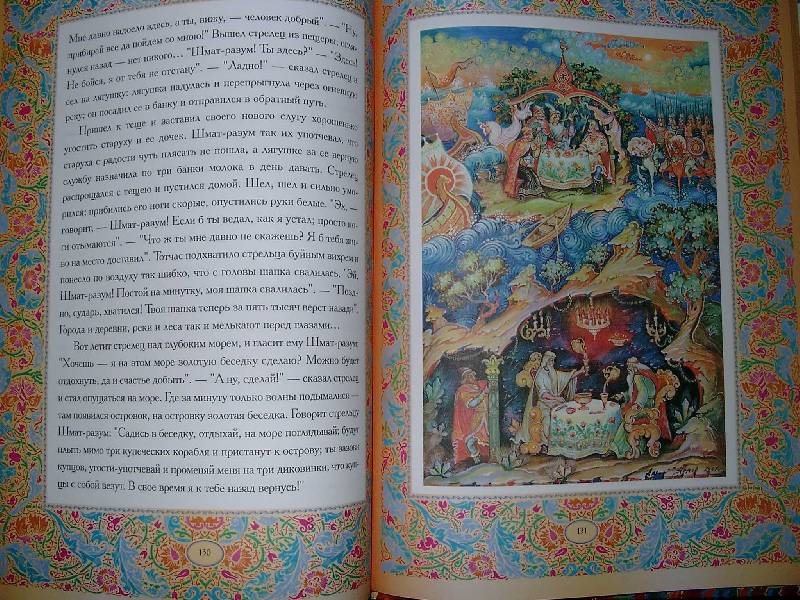 Мне давно надоело здесь, а ты, вижу, — человек добрый". — "Ну,
прибирай все да пойдем со мною!" Вышел стрелец из пещеры, огля-
нулся назад — нет никого... "Шмат-разум! Ты здесь?" — "Здесь!
Не бойся, я от тебя не отстану". — "Ладно!" — сказал стрелец и
сел на лягушку: лягушка надулась и перепрыгнула через огненную
реку; он посадил ее в банку и отправился в обратный путь.
Пришел к теще и заставил своего нового слугу хорошенько
угостить старуху и ее дочек. Шмат-разум так их употчевал, что
старуха с радости чуть плясать не пошла, а лягушке за ее верную
службу назначила по три банки молока в день давать. Стрелец
распрощался с тещею и пустился домой. Шел, шел и сильно умо-
рился; прибились его ноги скорые, опустились руки белые. "Эх, —
говорит, — Шмат-разум! Если б ты ведал, как я устал; просто но-
ги отымаются". — "Что ж ты мне давно не скажешь? Я б тебя жи-
во на место доставил". Тотчас подхватило стрельца буйным вихрем и
понесло по воздуху так шибко, что с головы шапка свалилась. "Эй,
Шмат-разум! Постой на минутку, моя шапка свалилась". — "Позд-
но, сударь, хватился! Твоя шапка теперь за пять тысяч верст назади".
Города и деревни, реки и леса так и мелькают перед глазами...
Вот летит стрелец над глубоким морем, и гласит ему Шмат-разум:
"Хочешь — я на этом море золотую беседку сделаю? Можно будет
отдохнуть, да и счастье добыть". — "А ну, сделай!" — сказал стрелец
и стал опущаться на море. Где за минуту только волны подымались —
там появился островок, на островку золотая беседка. Говорит стрельцу
Шмат-разум: "Садись в беседку, отдыхай, на море поглядывай; будут
плыть мимо три купеческих корабля и пристанут к острову; ты зазови
купцов, угости-употчевай и променяй меня на три диковинки, что куп-
цы с собой везут. В свое время я к тебе назад вернусь!"
130
131